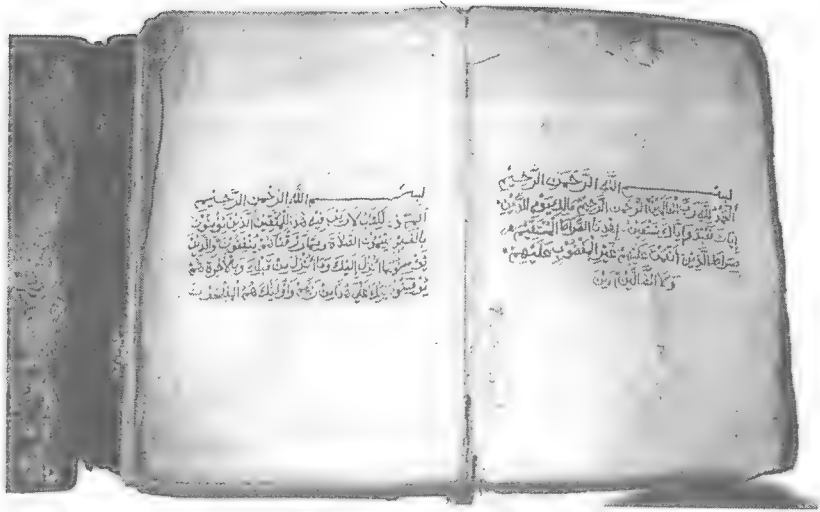 بسم الله الرحمن الرحيم
الحمد لله رب العالمين الرحمن الرحيم مالك يوم الدين
إياك نعبد وإياك نستعين إهدنا الصراط المستقيم
صراط الذين أنعمت عليهم غير المغضوب عليهم
ولا الضالين امين
بسم الله الرحمن الرحيم
الم ذلك الكتب لا ريب فيه هدى للمتقين الذين يؤمنون
بالغيب ويقيمون الصلاة ومما رزقناهم ينفقون والذين
يؤمنون بما أنزل إليك وما أنزل من قبلك وبالآخرة هم
يوقنون أولئك على هدى من ربهم وأولئك هم المفلحون